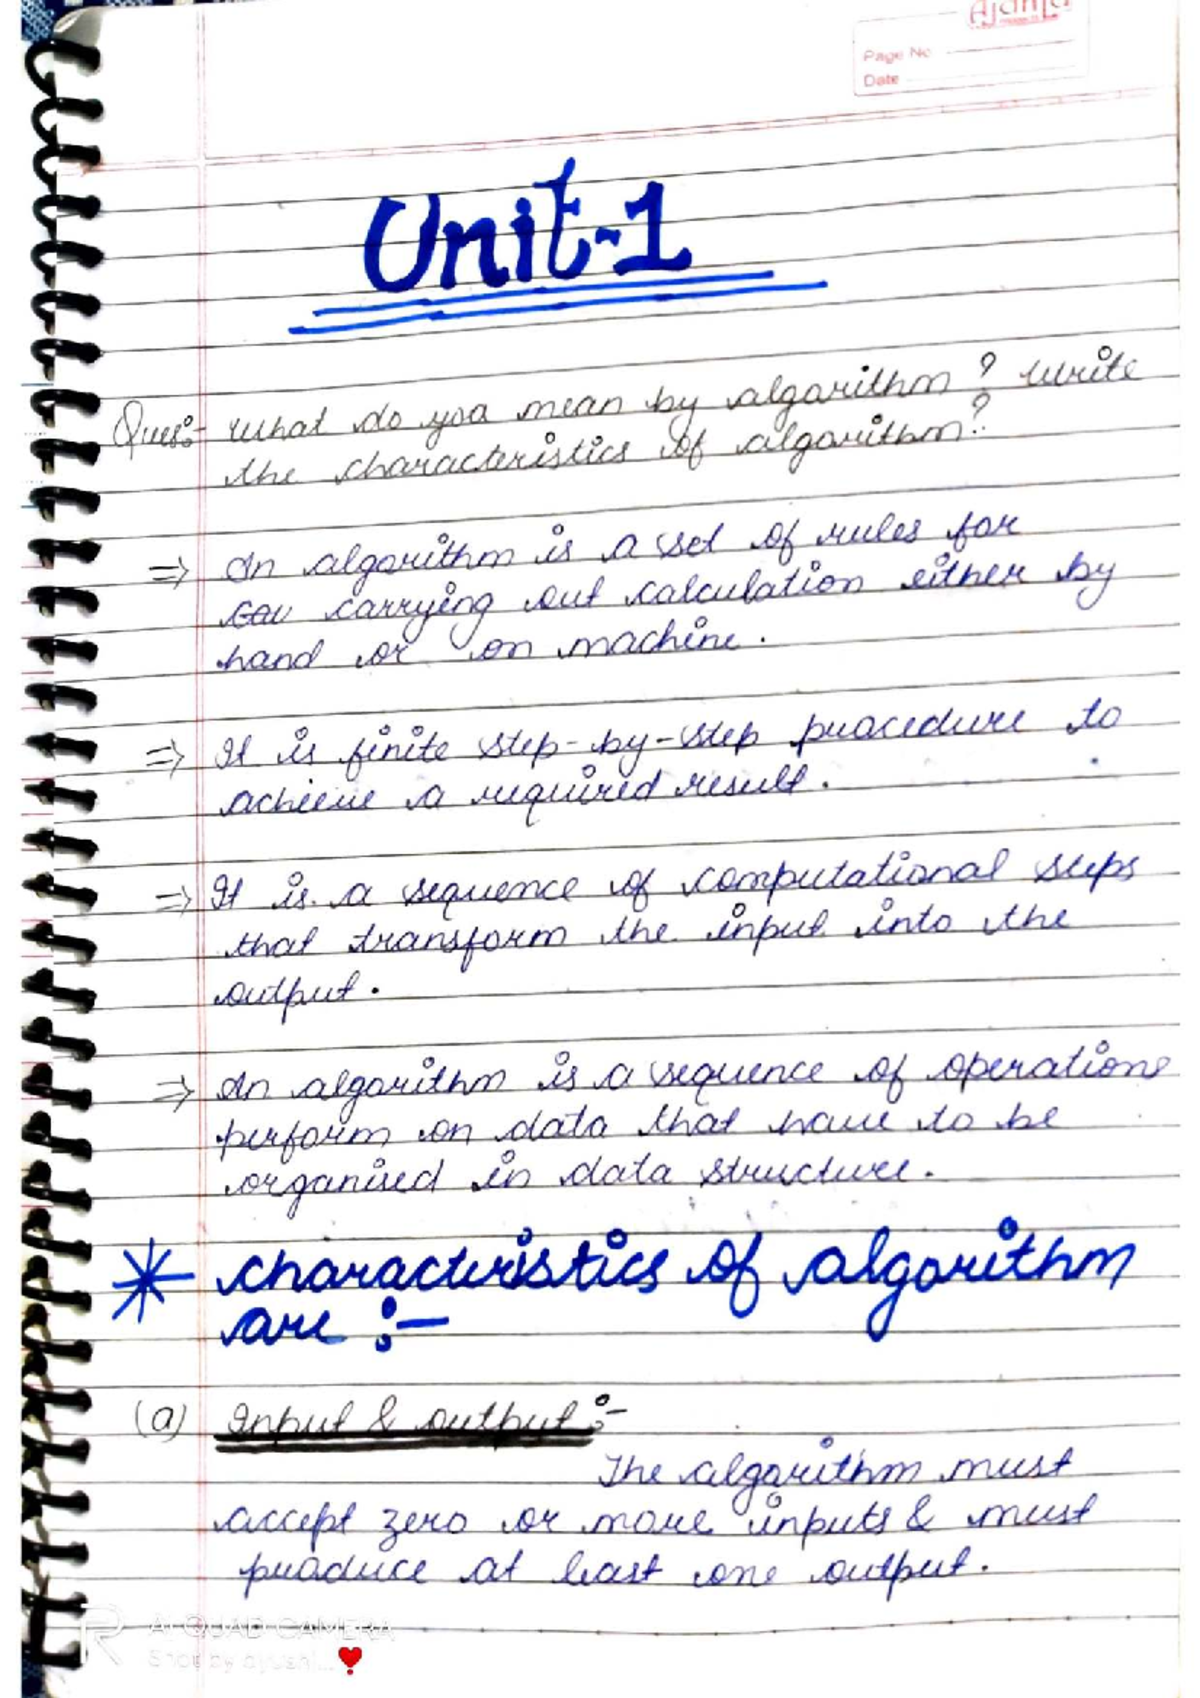 Ajanta
Page No
Date
Unit-1
Ques:- What do you mean by algorithm? Write
the characteristics of algorithm?
⇒ An algorithm is a set of rules for
carrying out calculation either by
hand or on machine.
⇒ It is finite step-by-step procedure to
achieve a required result.
⇒ It is a sequence of computational steps
that transform the input into the
output.
⇒ An algorithm is a sequence of operations
perform on data that have to be
organised in data structure.
* characteristics of algorithm
are :-
(a) Input & output :-
The algorithm must
accept zero or more inputs & must
produce at least one output.
AI QUAD CAMERA
Shot by